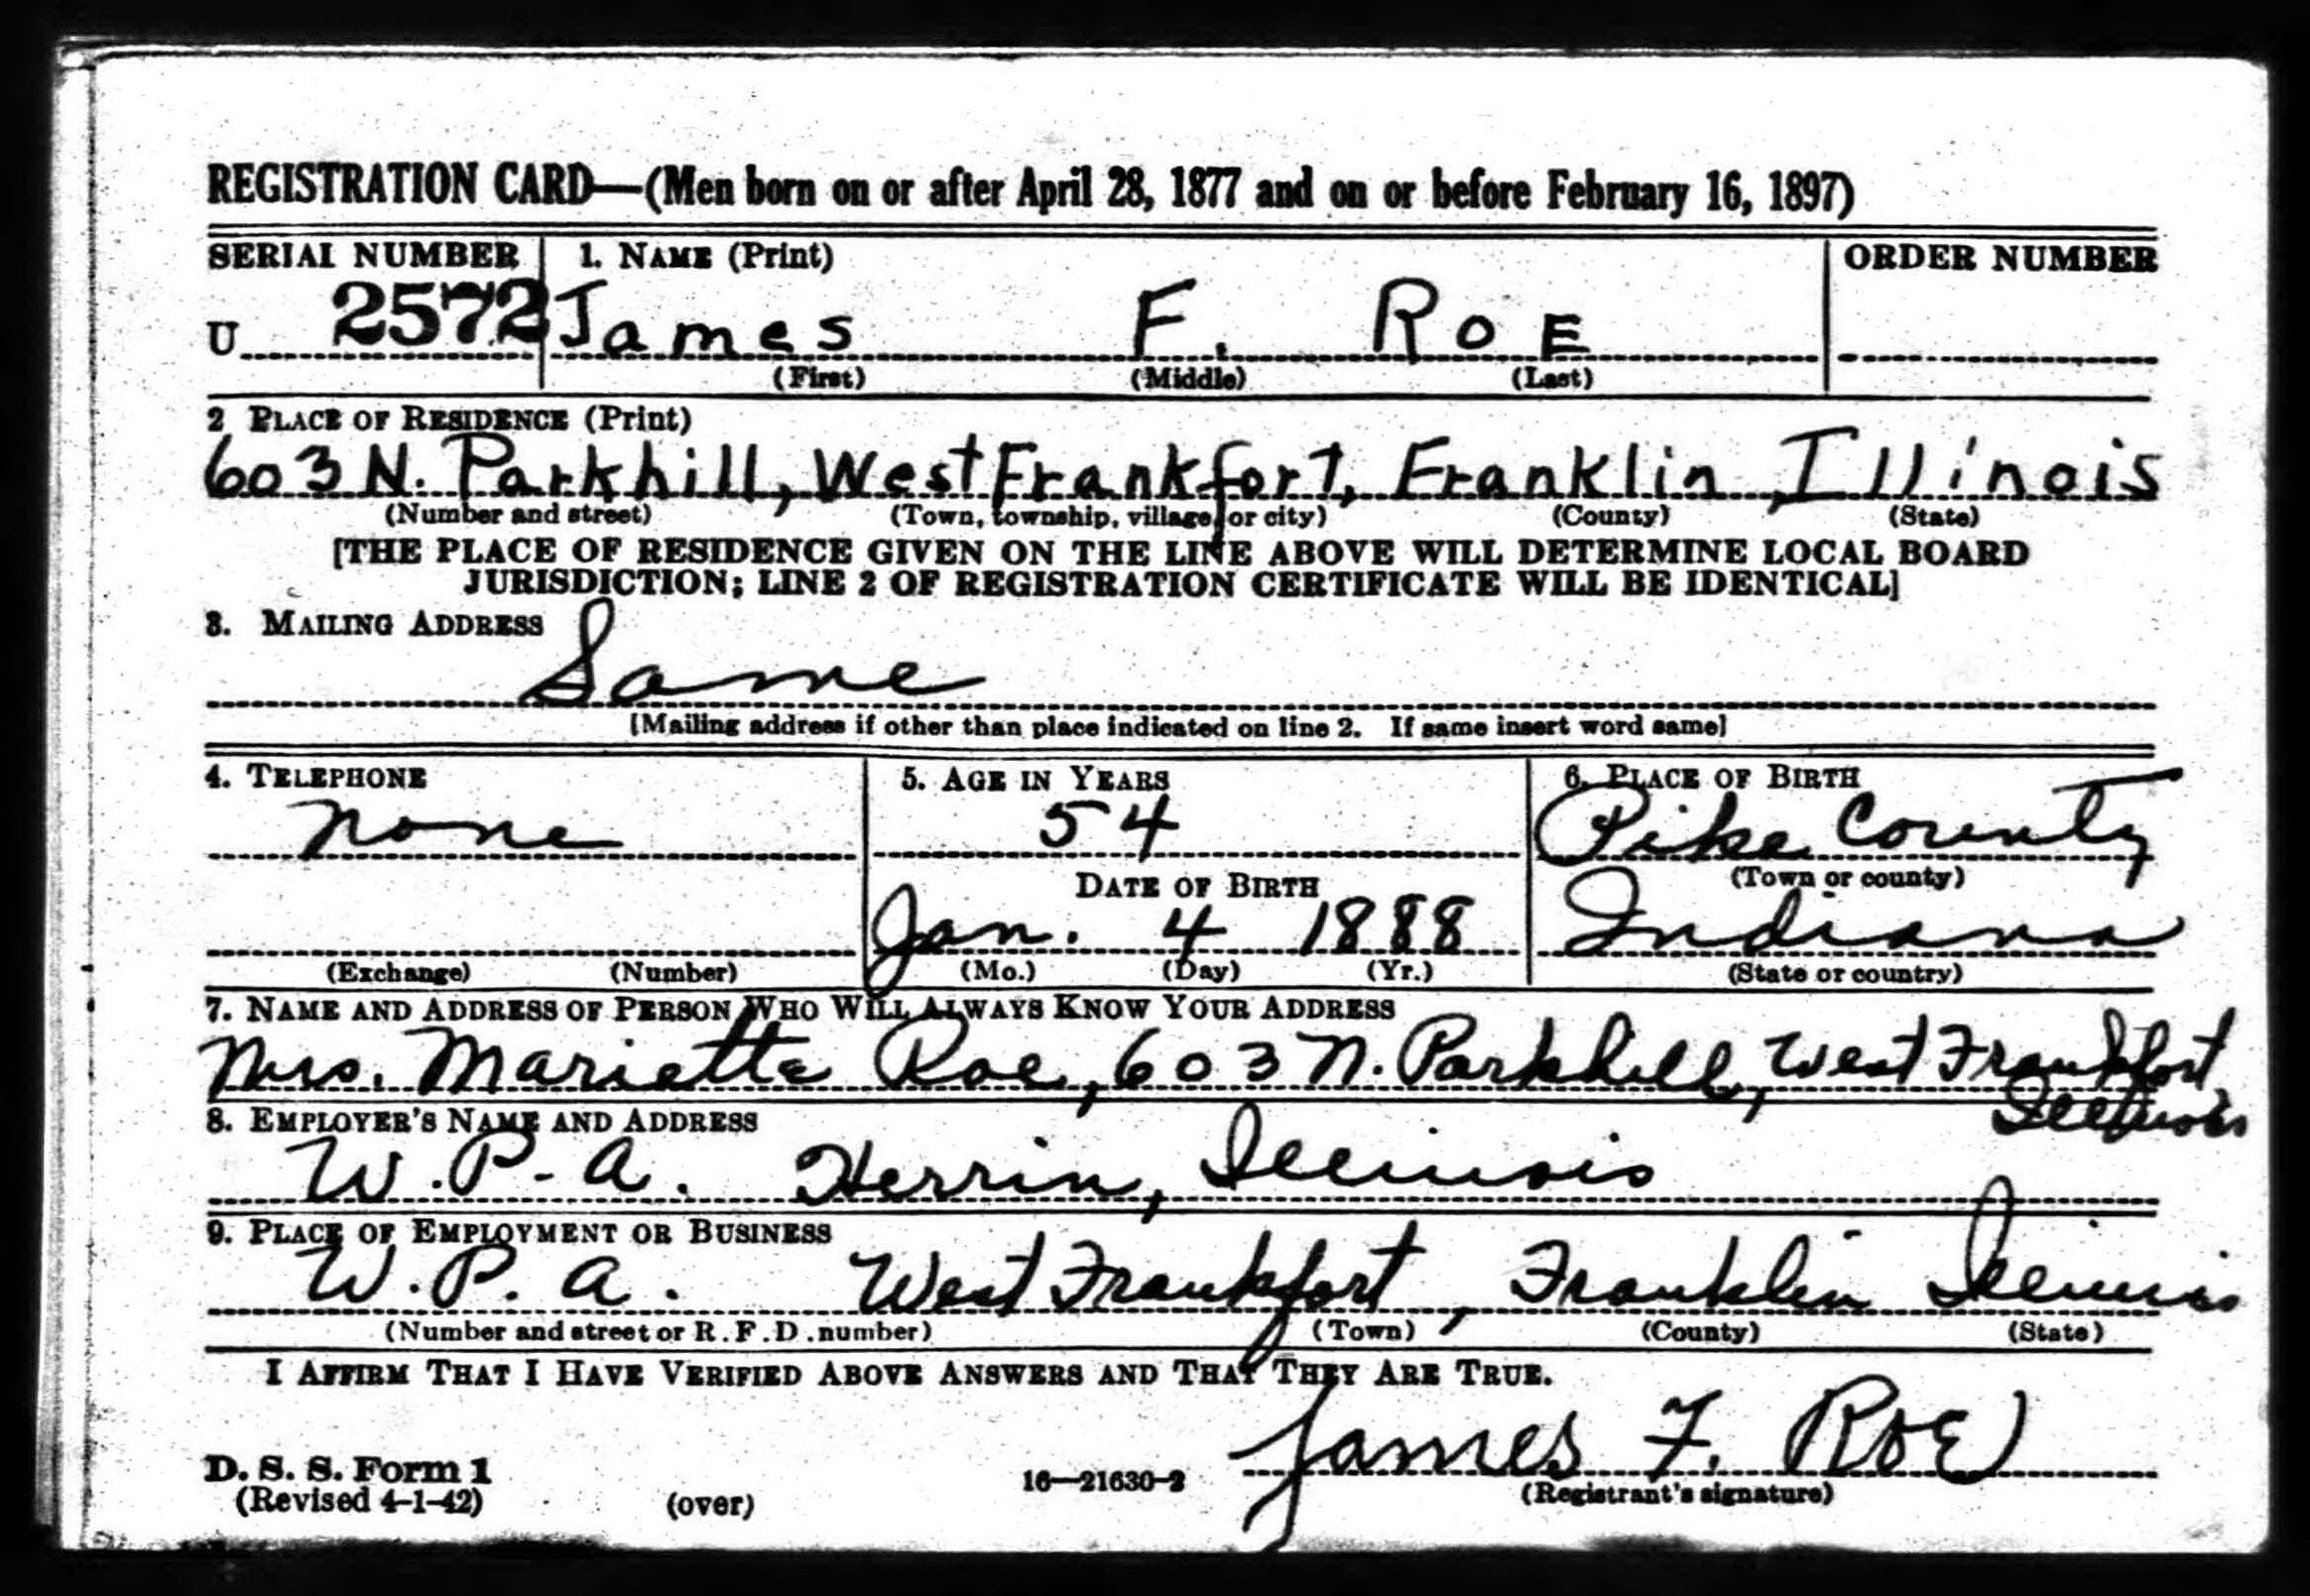 REGISTRATION CARD—(Men born on or after April 28, 1877 and on or before February 16, 1897)
SERIAL NUMBER 1. NAME (Print) ORDER NUMBER
U 2572 James F. ROE
(First) (Middle) (Last)
2 PLACE OF RESIDENCE (Print)
603 N. Parkhill, West Frankfort, Franklin, Illinois
(Number and street) (Town, township, village, or city) (County) (State)
[THE PLACE OF RESIDENCE GIVEN ON THE LINE ABOVE WILL DETERMINE LOCAL BOARD
JURISDICTION; LINE 2 OF REGISTRATION CERTIFICATE WILL BE IDENTICAL]
3. MAILING ADDRESS
Same
[Mailing address if other than place indicated on line 2. If same insert word same]
4. TELEPHONE 5. AGE IN YEARS 6. PLACE OF BIRTH
none 54 Pike County
DATE OF BIRTH (Town or county)
Jan. 4 1888 Indiana
(Exchange) (Number) (Mo.) (Day) (Yr.) (State or country)
7. NAME AND ADDRESS OF PERSON WHO WILL ALWAYS KNOW YOUR ADDRESS
Mrs. Marietta Roe, 603 N. Parkhill, West Frankfort,
Illinois
8. EMPLOYER'S NAME AND ADDRESS
W.P-A. Herrin, Illinois
9. PLACE OF EMPLOYMENT OR BUSINESS
W.P.A. West Frankfort, Franklin Illinois
(Number and street or R.F.D. number) (Town) (County) (State)
I AFFIRM THAT I HAVE VERIFIED ABOVE ANSWERS AND THAT THEY ARE TRUE.
James F. ROE
D. S. S. Form 1
(Revised 4-1-42) (over) 16—21630-2 (Registrant's signature)